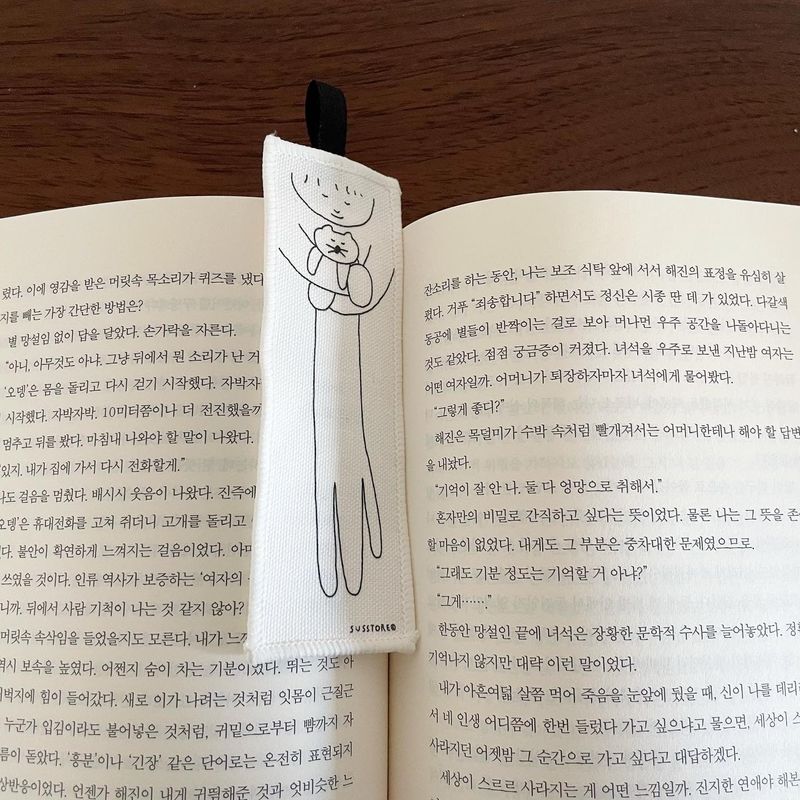 렸다. 이에 영감을 받은 머릿속 목소리가 퀴즈를 냈다
지를 빼는 가장 간단한 방법은?
별 망설임 없이 답을 달았다. 손가락을 자른다.
“아니, 아무것도 아냐. 그냥 뒤에서 뭔 소리가 난 거
‘오뎅’은 몸을 돌리고 다시 걷기 시작했다. 자박자박
시작했다. 자박자박. 10미터쯤이나 더 전진했을까
멈추고 뒤를 봤다. 마침내 나와야 할 말이 나왔다.
있지, 내가 집에 가서 다시 전화할게.”
나도 걸음을 멈췄다. 배시시 웃음이 나왔다. 진즉에
오뎅’은 휴대전화를 고쳐 쥐더니 고개를 돌리고
다. 불안이 확연하게 느껴지는 걸음이었다.
쓰였을 것이다. 인류 역사가 보증하는 ‘여자의
니까. 뒤에서 사람 기척이 나는 것 같지 않아?
머릿속 속삭임을 들었을지도 모른다. 내가
역시 보속을 높였다. 어쩐지 숨이 차는 기분이었다. 뛰는 것도 아
허벅지에 힘이 들어갔다. 새로 이가 나려는 것처럼 잇몸이 근질근
누군가 입김이라도 불어넣은 것처럼, 귀밑으로부터 뺨까지 자
름이 돋았다. ‘흥분’이나 ‘긴장’ 같은 단어로는 온전히 표현되지
상반응이었다. 언젠가 해진이 내게 귀띔해준 것과 엇비슷한 느
SUSSTORE
잔소리를 하는 동안, 나는 보조 식탁 앞에 서서 해진의 표정을 유심히 살
폈다. 거푸 “죄송합니다” 하면서도 정신은 시종 딴 데 가 있었다. 다갈색
동공에 별들이 반짝이는 걸로 보아 머나먼 우주 공간을 나돌아다니는
것도 같았다. 점점 궁금증이 커졌다. 녀석을 우주로 보낸 지난밤 여자는
어떤 여자일까. 어머니가 퇴장하자마자 녀석에게 물어봤다.
“그렇게 좋디?”
해진은 목덜미가 수박 속처럼 빨개져서는 어머니한테나 해야 할 답변
을 내놨다.
“기억이 잘 안 나. 둘 다 엉망으로 취해서.”
혼자만의 비밀로 간직하고 싶다는 뜻이었다. 물론 나는 그 뜻을 존
할 마음이 없었다. 내게도 그 부분은 중차대한 문제였으므로.
“그래도 기분 정도는 기억할 거 아냐?”
“그게…….”
한동안 망설인 끝에 녀석은 장황한 문학적 수사를 늘어놓았다.
기억나지 않지만 대략 이런 말이었다.
내가 아흔여덟 살쯤 먹어 죽음을 눈앞에 뒀을 때, 신이 나를 데리러
서 네 인생 어디쯤에 한번 들렀다 가고 싶으냐고 물으면, 세상이 스
사라지던 어젯밤 그 순간으로 가고 싶다고 대답하겠다.
세상이 스르르 사라지는 게 어떤 느낌일까. 진지한 연애야 해본